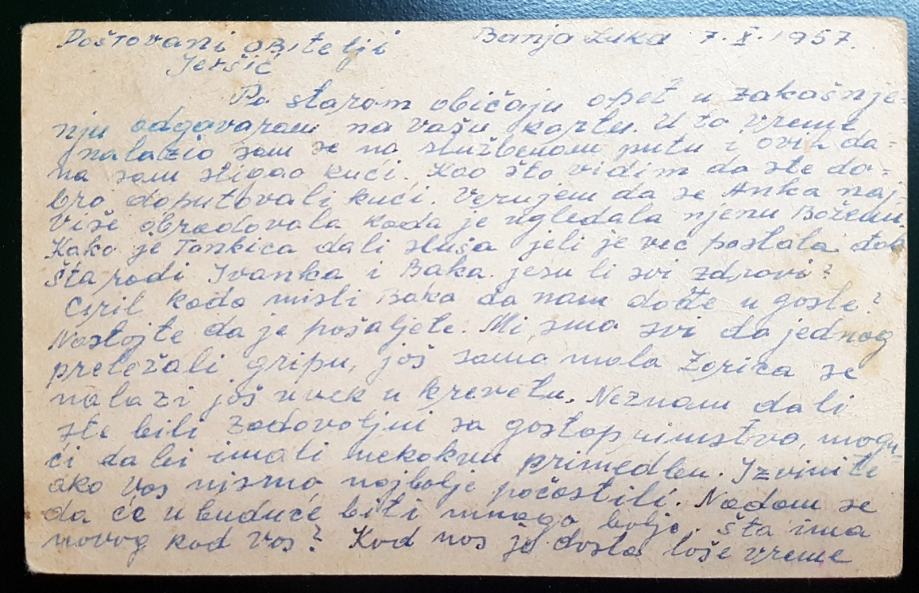 Poštovani obitelji Banja Luka 7. X. 1957.
Jeršić
Po starom običaju opet u zakašnje-
nju odgovaram na vašu kartu. U to vreme
nalazio sam se na službenom putu i ovih da-
na sam stigao kući. Kao što vidim da ste do-
bro doputovali kući. Verujem da se Anka naj-
više obradovala kada je ugledala njenu
Kako je Tonkica dali sluša jeli je već postala
šta radi Ivanka i Baka jesu li svi zdravi?
Ciril kada misli Baka da nam dođe u goste?
Nastojte da je pošaljete. Mi smo svi da jednog
preležali gripu, još samo mala Zorica se
nalazi još uvek u krevetu. Neznam da li
ste bili zadovoljni sa gostoprimstvo, mogu-
ći da bi imali nekakvu primedbu. Izvinite
ako vas nismo najbolje počastili. Nadam se
da će ubuduće biti mnogo bolje. Šta ima
novog kod vas? Kod nas je dosta loše vreme